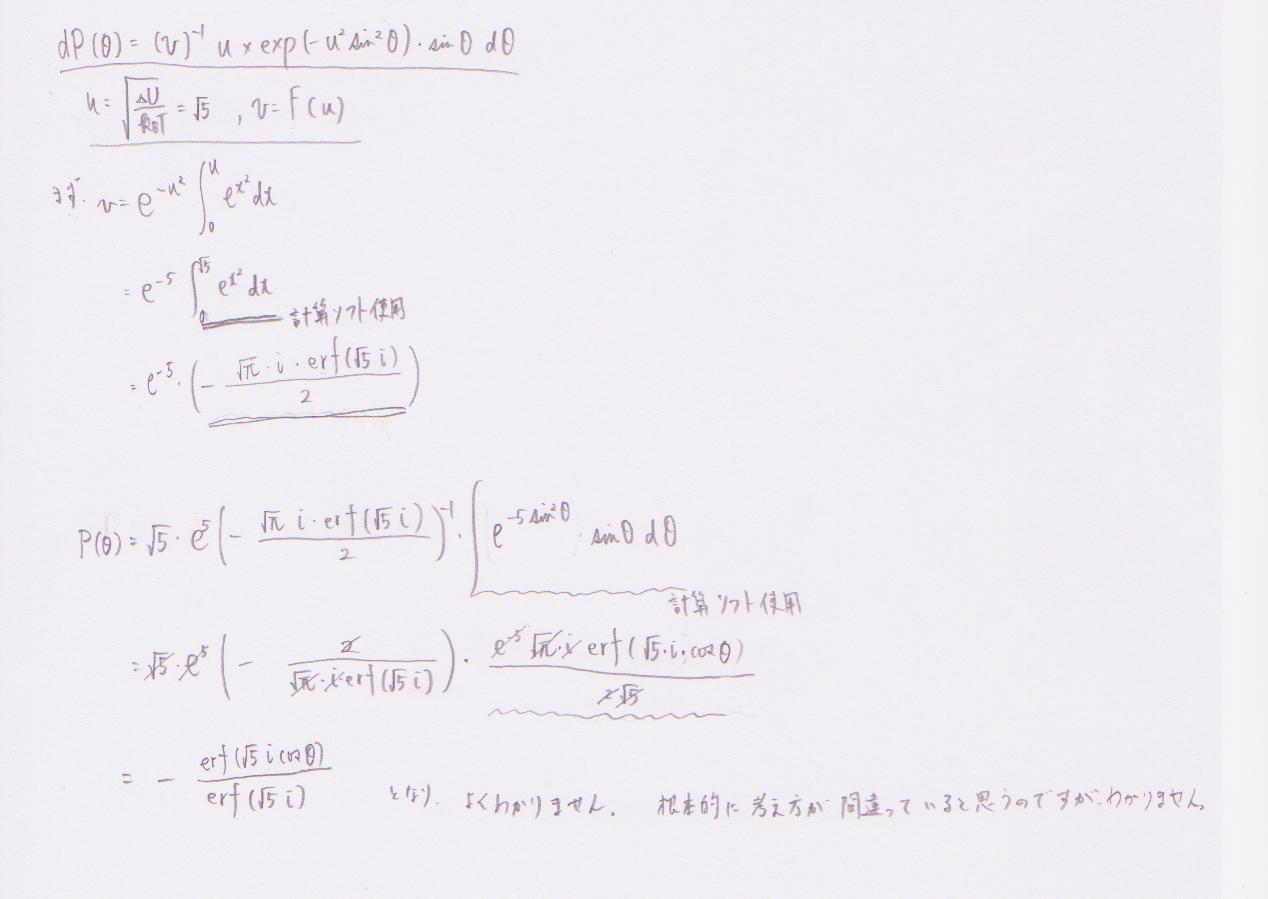 dP(θ) = (v)⁻¹ u × exp(-u² sin²θ)・sinθ dθ
u = √(ΔU/k_BT) = √5 , v = F(u)
まず. v = e^(-u²) ∫₀^u e^(x²) dx
= e⁻⁵ ∫₀^√5 e^(x²) dx 計算ソフト使用
= e⁻⁵・(- (√π・i・erf(√5 i))/2)
P(θ) = √5・e⁵ (- (√π i・erf(√5 i))/2)⁻¹・∫ e^(-5 sin²θ)・sinθ dθ
計算ソフト使用
= √5・e⁵ (- 2/(√π・i・erf(√5 i)))・(e⁻⁵ √π・i erf(√5・i・cosθ))/(2√5)
= - erf(√5 i cosθ)/erf(√5 i) となり. よくわかりません. 根本的に考え方が間違っていると思うのですが、わかりません。